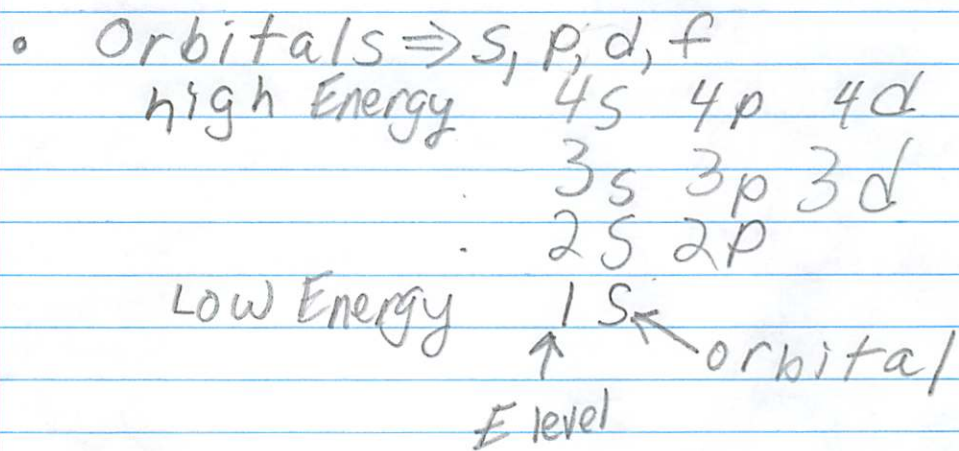 • Orbitals ⇒ s, p, d, f
high Energy 4s 4p 4d
3s 3p 3d
2s 2p
Low Energy 1s
orbital
E level